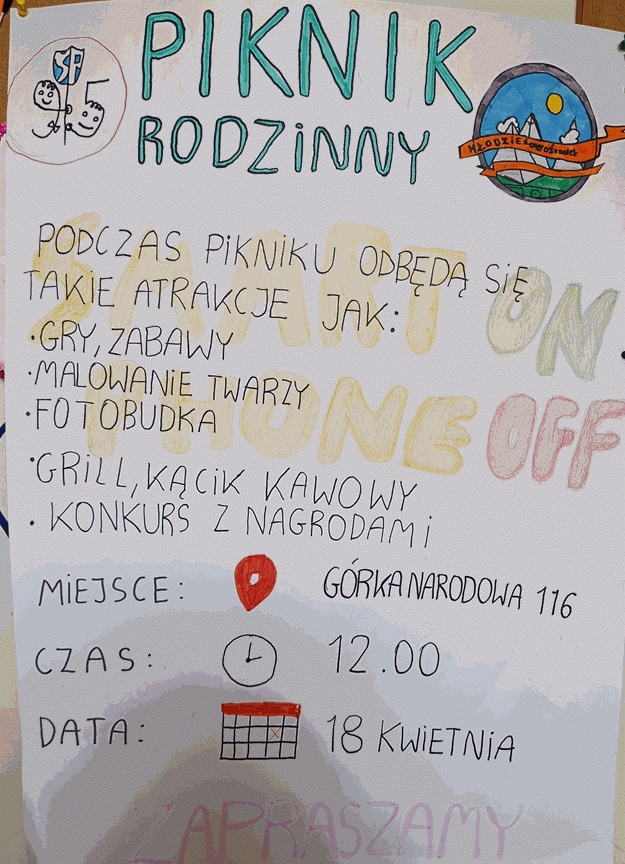 PIKNIK
RODZiNNY
SP
95
MŁODZIEŻOWOŚrodek
PODCZAS PiKNiKU ODBĘDĄ SiĘ
TAKiE ATRAKCJE JAK:
SMART ON
• GRY, ZABAWY
• MALOWANiE TWARZY
• FOTOBUDKA
PHONE OFF
• GRiLL, KĄCiK KAWOWY
• KONKURS Z NAGRODAMi
MiEJSCE: GÓRKA NARODOWA 116
CZAS: 12.00
DATA: 18 KWiETNiA
ZAPRASZAMY